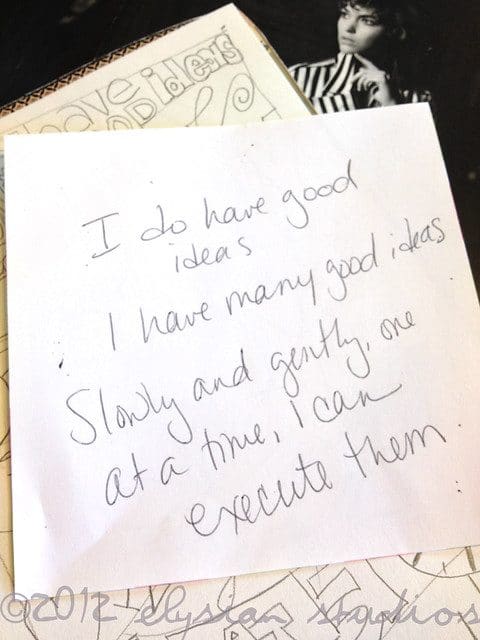 have
GOOD ideas
I do have good
ideas
I have many good ideas
Slowly and gently, one
at a time, I can
execute them.
©2012 elysian studios